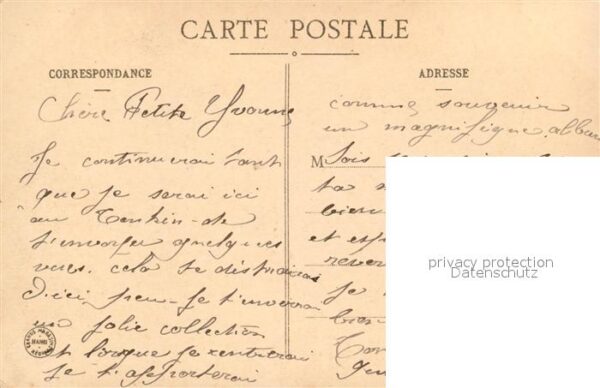 CARTE POSTALE
CORRESPONDANCE
Chère Petite Yvonne
Je continuerai tant
que je serai ici
au Tonkin - de
t'envoyer quelques
vues. cela te distraira
D'ici peu - je t'enverrai
une jolie collection
et lorsque je rentrerai
je t'apporterai
ADRESSE
comme souvenir
un magnifique album
M Sois
ta
bien
et
rever
Je
bien
privacy protection
Datenschutz